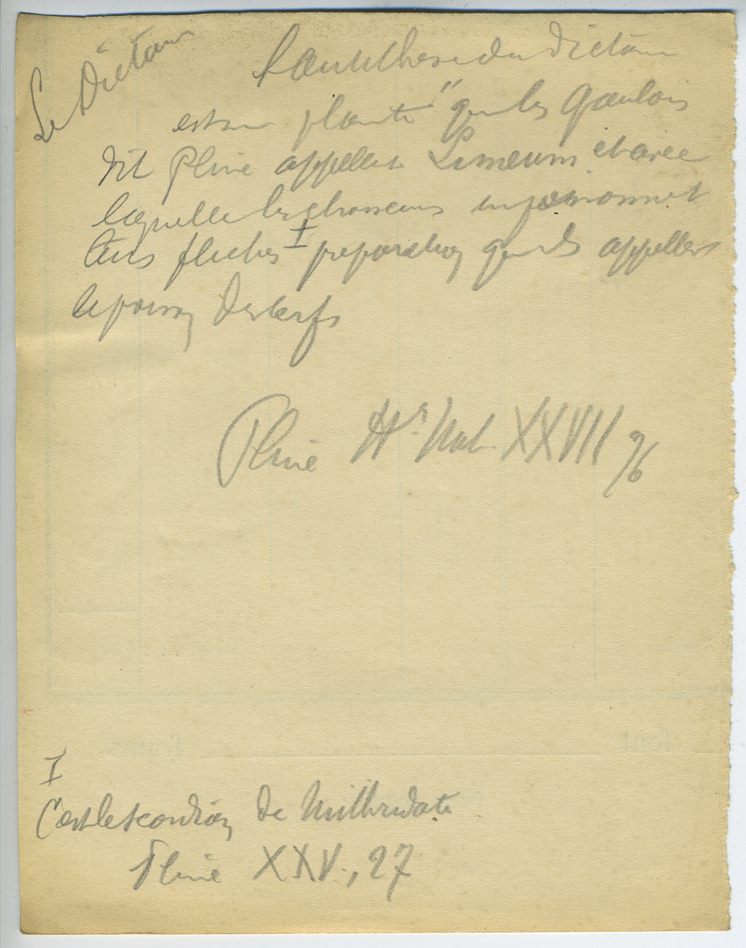 Le Dictam
L'antithese du Dictam
est une plante "que les Gaulois
dit Pline appellent Limeum et avec
laquelle les chasseurs empoisonnent
leurs fleches I preparation qu'ils appellent
le poison des cerfs
Pline Hre Nat. XXVII 76
I
C'est le scordion de Mithridate
Pline XXV, 27